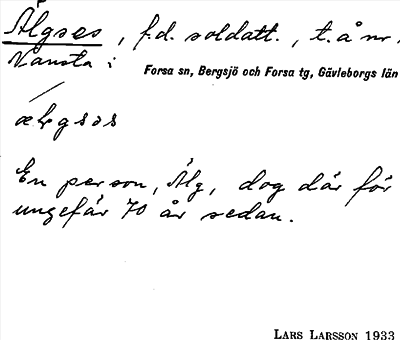 Älgses, f.d. soldatt., t. å nr.
Vånsta i
Forsa sn, Bergsjö och Forsa tg, Gävleborgs län
En person, Älg, dog där för
ungefär 70 år sedan.
LARS LARSSON 1933